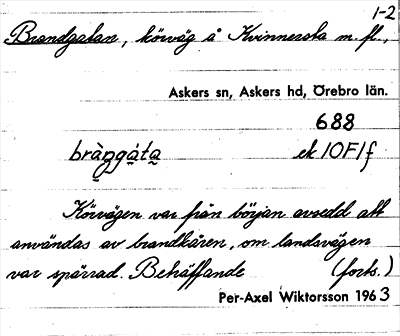 1-2
Brandgatan, körväg å Kvinnersta m. fl.,
Askers sn, Askers hd, Örebro län.
688
bràŋgáta ek 10F1f
Körvägen var från början avsedd att
användas av brandkåren, om landsvägen
var spärrad. Behäftande (forts.)
Per-Axel Wiktorsson 1963